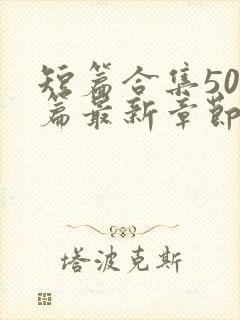 短篇合集50
篇最新章节
塔波克斯